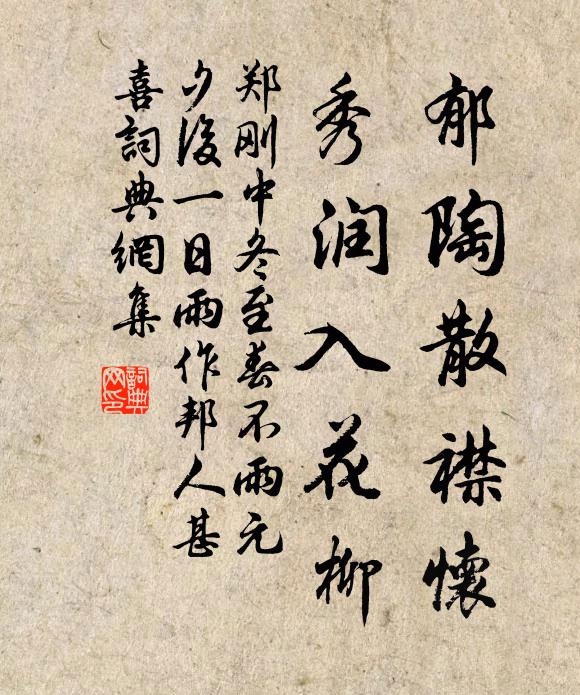 郁陶散襟懷
秀润入花柳
郑刚中冬至春不雨元
夕後一日雨作邦人甚
喜詞典網集
詞典
网印